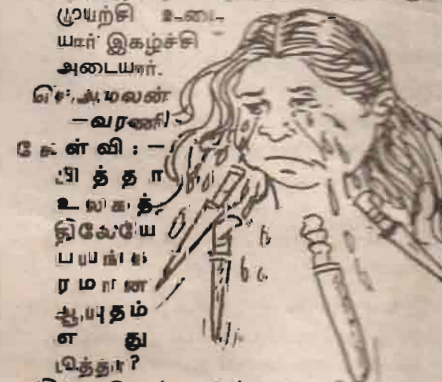 முயற்சி உடை-
யார் இகழ்ச்சி
அடையார்.
அமலன்
—வரணி
கேள்வி : —
பித்தா
உலகத்
திலேயே
பயங்க
ரமான
ஆயுதம்
எது
பித்தா?